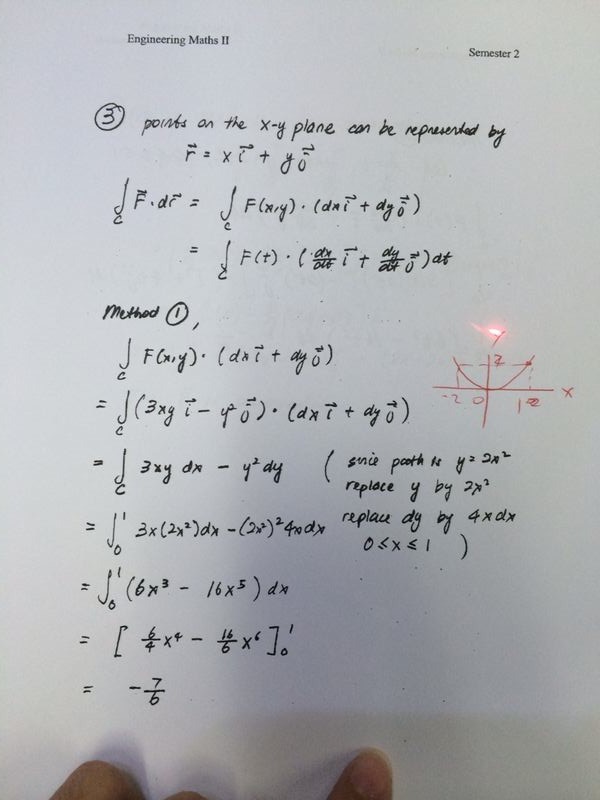 Engineering Maths II
Semester 2
③ points on the x-y plane can be represented by
r⃗ = x i⃗ + y j⃗
∫_C F⃗ · dr⃗ = ∫_C F(x,y) · (dx i⃗ + dy j⃗)
= ∫_C F(t) · (dx/dt i⃗ + dy/dt j⃗) dt
Method ①,
∫_C F(x,y) · (dx i⃗ + dy j⃗)
= ∫_C (3xy i⃗ − y² j⃗) · (dx i⃗ + dy j⃗)
= ∫_C 3xy dx − y² dy ( since path is y = 2x²
replace y by 2x²
= ∫₀¹ 3x(2x²)dx − (2x²)² 4x dx replace dy by 4x dx
0 ≤ x ≤ 1 )
= ∫₀¹ (6x³ − 16x⁵) dx
= [ 6/4 x⁴ − 16/6 x⁶ ]₀¹
= −7/6
Y
-2 0 1 X